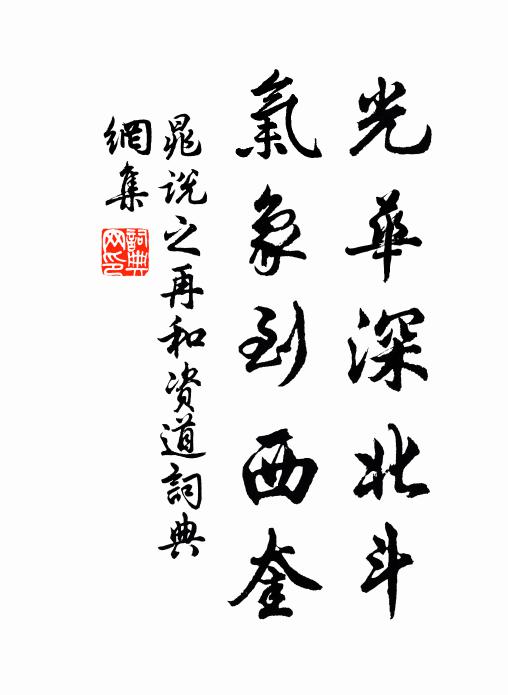 光華深北斗
氣象到西奎
晁說之再和資道詞典
網集
詞典
网印